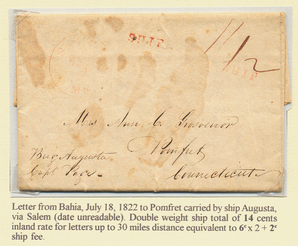 SHIP
Mrs Ann C Grosvenor
Pomfret
Connecticut
Brig Augusta
Capt
Letter from Bahia, July 18, 1822 to Pomfret carried by ship Augusta,
via Salem (date unreadable). Double weight ship total of 14 cents
inland rate for letters up to 30 miles distance equivalent to 6¢ x 2 + 2¢
ship fee.